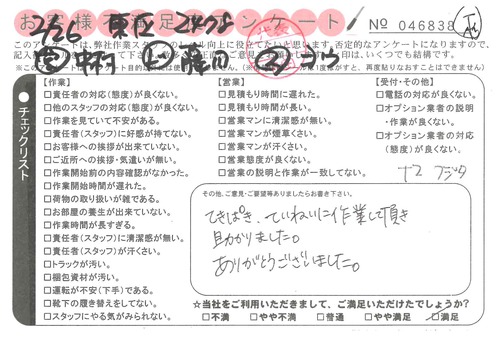 お客様不満足度アンケート
No 046838
2/26 東区
このアンケートは、弊社作業スタッフの
【作業】
□責任者の対応(態度)が良くない。
□他のスタッフの対応(態度)が良くない。
□作業を見ていて不安がある。
□責任者(スタッフ)に好感が持てない。
□お客様への挨拶が出来ていない。
□ご近所への挨拶・気遣いが無い。
□作業開始前の内容確認がなかった。
□作業開始時間が遅れた。
□荷物の取り扱いが雑である。
□お部屋の養生が出来ていない。
□作業時間が長すぎる。
□責任者(スタッフ)に清潔感が無い。
□責任者(スタッフ)が汗くさい。
□トラックが汚い。
□梱包資材が汚い。
□運転が不安(下手)である。
□靴下の履き替えをしてない。
□スタッフにやる気がみられない。
【営業】
□見積もり時間に遅れた。
□見積もり時間が長い。
□営業マンに清潔感が無い。
□営業マンが煙草くさい。
□営業マンが汗くさい。
□営業態度が良くない。
□営業の説明と作業が一致してない。
【受付・その他】
□電話の対応が良くない。
□オプション業者の説明
・作業が良くない。
□オプション業者の対応
(態度)が良くない。
フジタ
チェックリスト
その他、ご意見・ご要望等ありましたらお書き下さい。
てきぱき、ていねいに作業して頂き
助かりました。
ありがとうございました。
☆当社をご利用いただきまして、ご満足いただけたでしょうか?
□不満 □やや不満 □普通 □やや満足 □満足